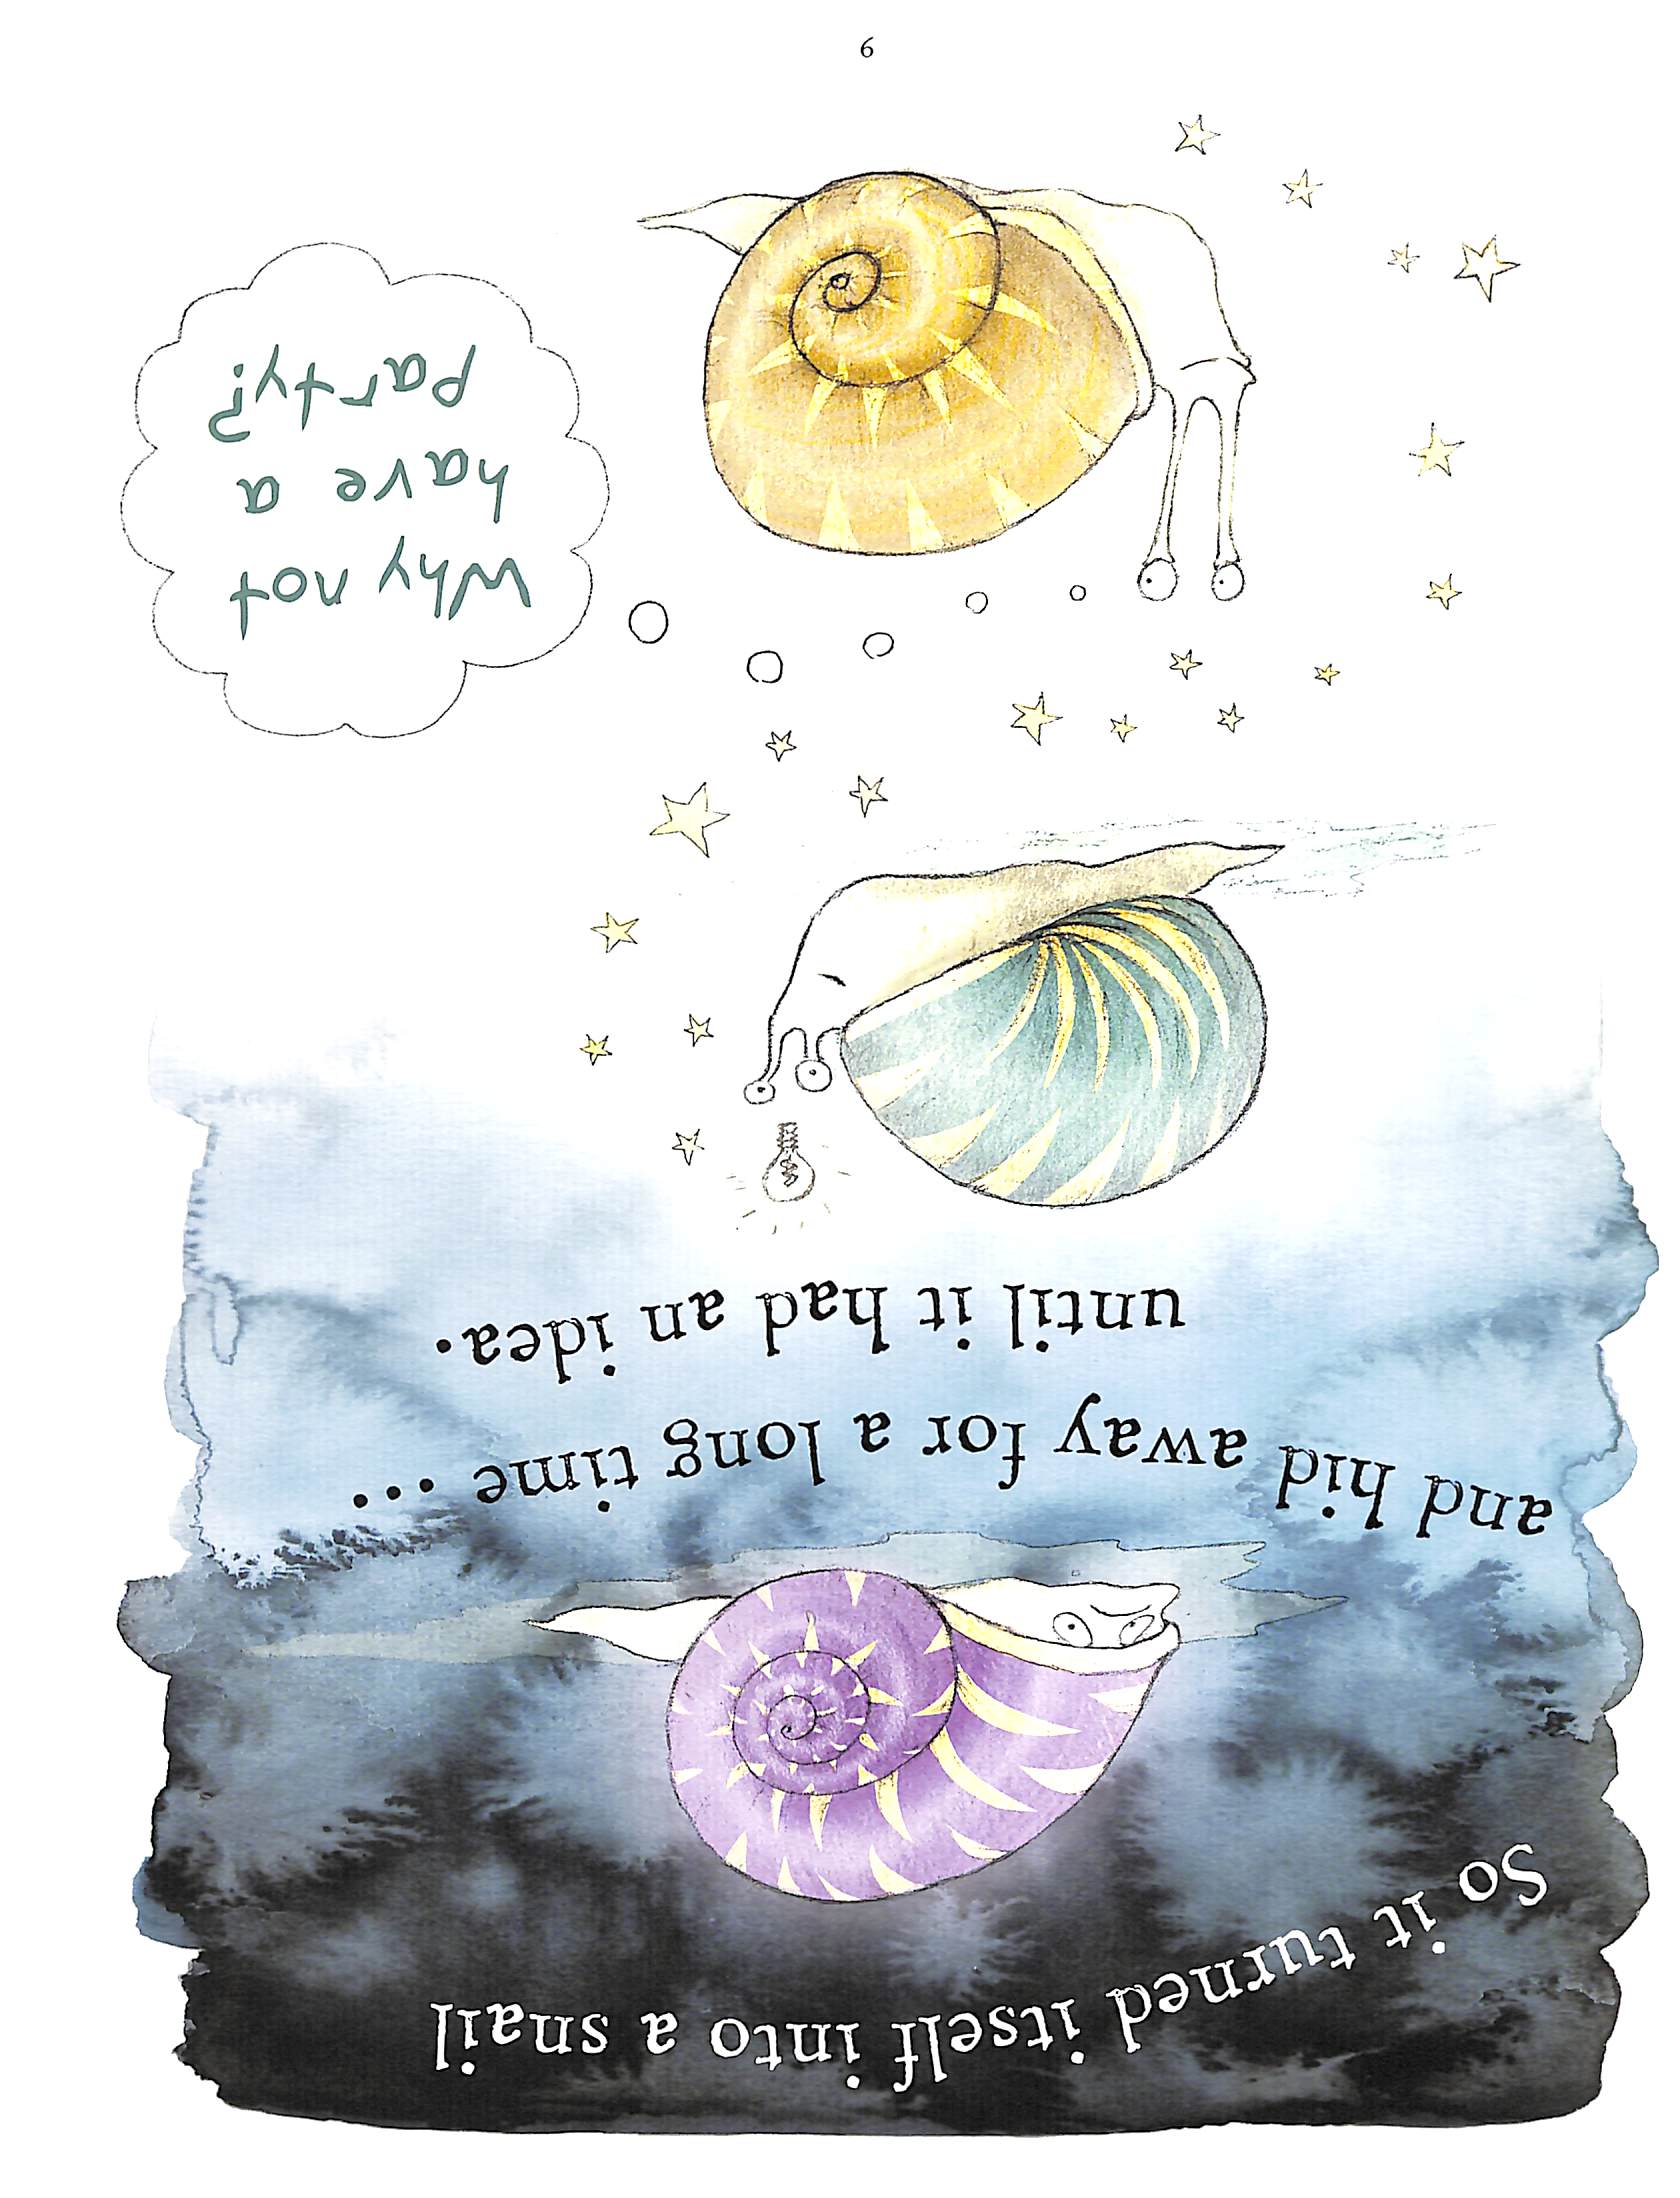 So it turned itself into a snail
and hid away for a long time ...
until it had an idea.
Why not
have a
party?
9